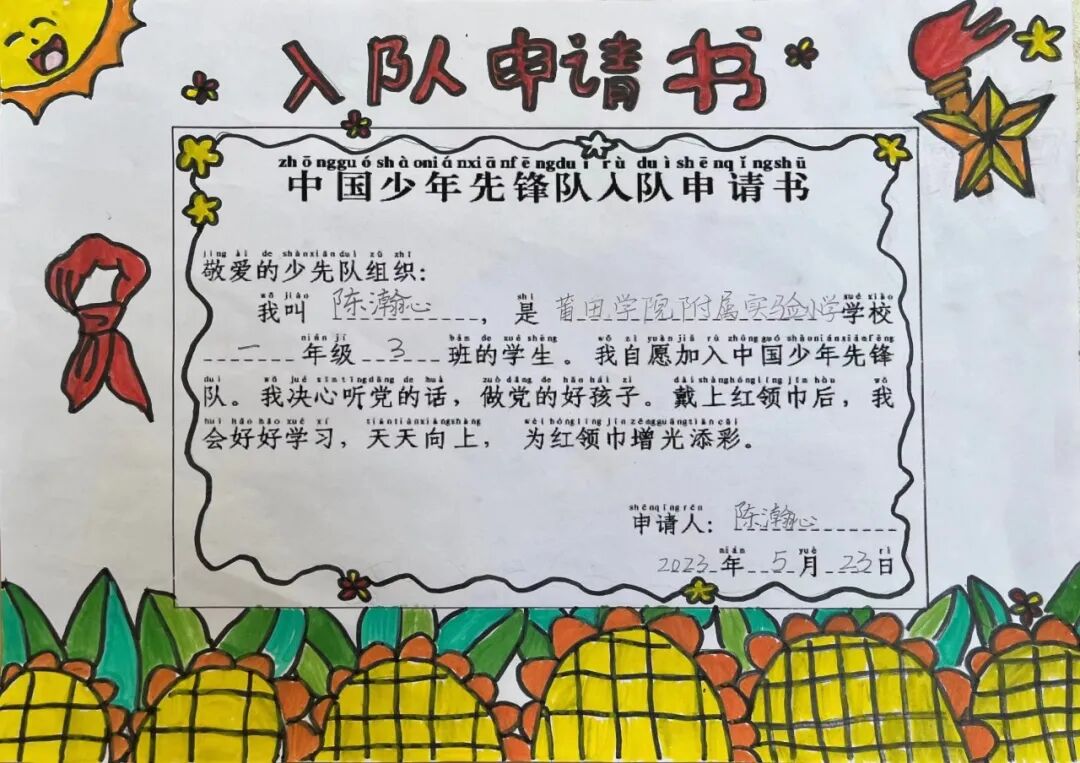 入队申请书
zhōngguóshàoniánxiānfēngduì rù duìshēnqǐngshū
中国少年先锋队入队申请书
jìng ài de shàoxiānduì zǔ zhī
敬爱的少先队组织：
wǒ jiào shì xué xiào
我叫 陈瀚心 ，是 莆田学院附属实验小学 学校
nián jí bān de xué shēng wǒ zìyuàn jiā rù zhōngguóshàoniánxiānfēng
一 年级 3 班的学生。我自愿加入中国少年先锋
duì wǒ jué xīn tīng dǎng de huà zuò dǎng de hǎo hái zi dài shàng hóng lǐng jīn hòu wǒ
队。我决心听党的话，做党的好孩子。戴上红领巾后，我
huì hǎo hǎo xué xí tiāntiānxiàngshàng wèi hóng lǐng jīn zēngguāngtiāncǎi
会好好学习，天天向上， 为红领巾增光添彩。
shēnqǐngrén
申请人： 陈瀚心
nián yuè rì
2023 年 5 月 23 日